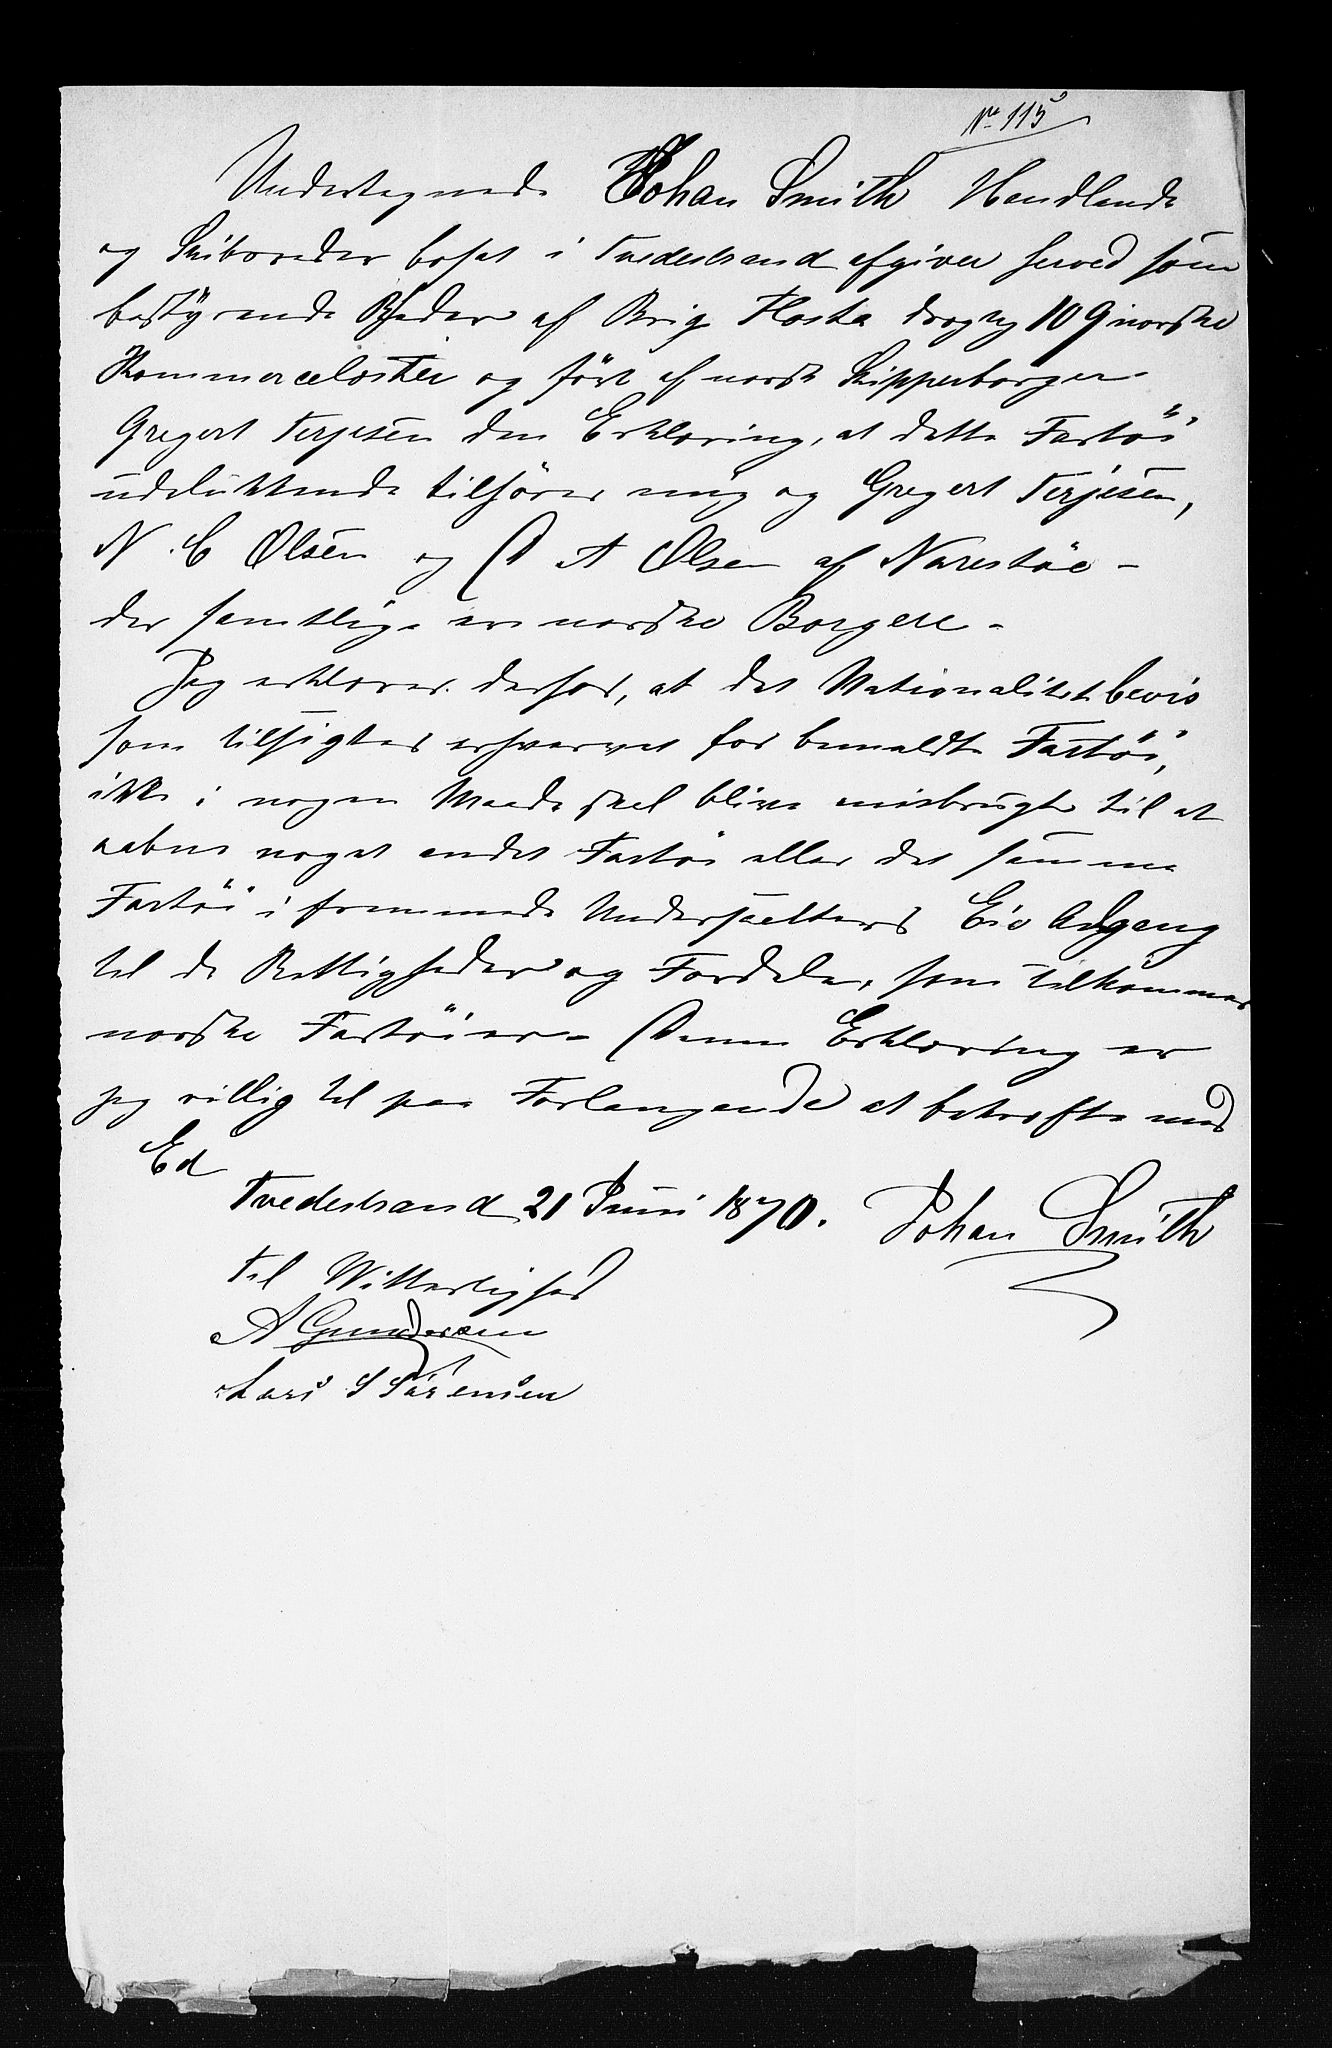 No 115
Undertegnede Johan Smith Handlende
og Skibsreder bosat i Tvedestrand afgiver herved som
bestyrende Rheder af Brig Hosta drægtig 109 norske
Kommercelæster og ført af norsk Skipperborger
Gregert Terjesen den Erklæring, at dette Fartöi
udelukkende tilhører mig og Gregert Terjesen,
N. C Olsen og D A Olsen af Narestöe -
der samtlige ere norske Borgere -
Jeg erklærer derfor, at det Nationalitetsbevis
som tilsigtes erhvervet for bemeldte Fartöi,
ikke i nogen Maade skal blive misbrugt til at
aabne noget andet Fartöi eller det samme
Fartöi i fremmede Undersaatters Eie Adgang
til de Rettigheder og Fordele, som tilkommer
norske Fartöier - Denne Erklæring er
jeg villig til paa Forlangende at bekræfte med
Ed
Tvedestrand 21 Juni 1870. Johan Smith
Til Witterlighed
A Gundersen
Lars S Sörensen